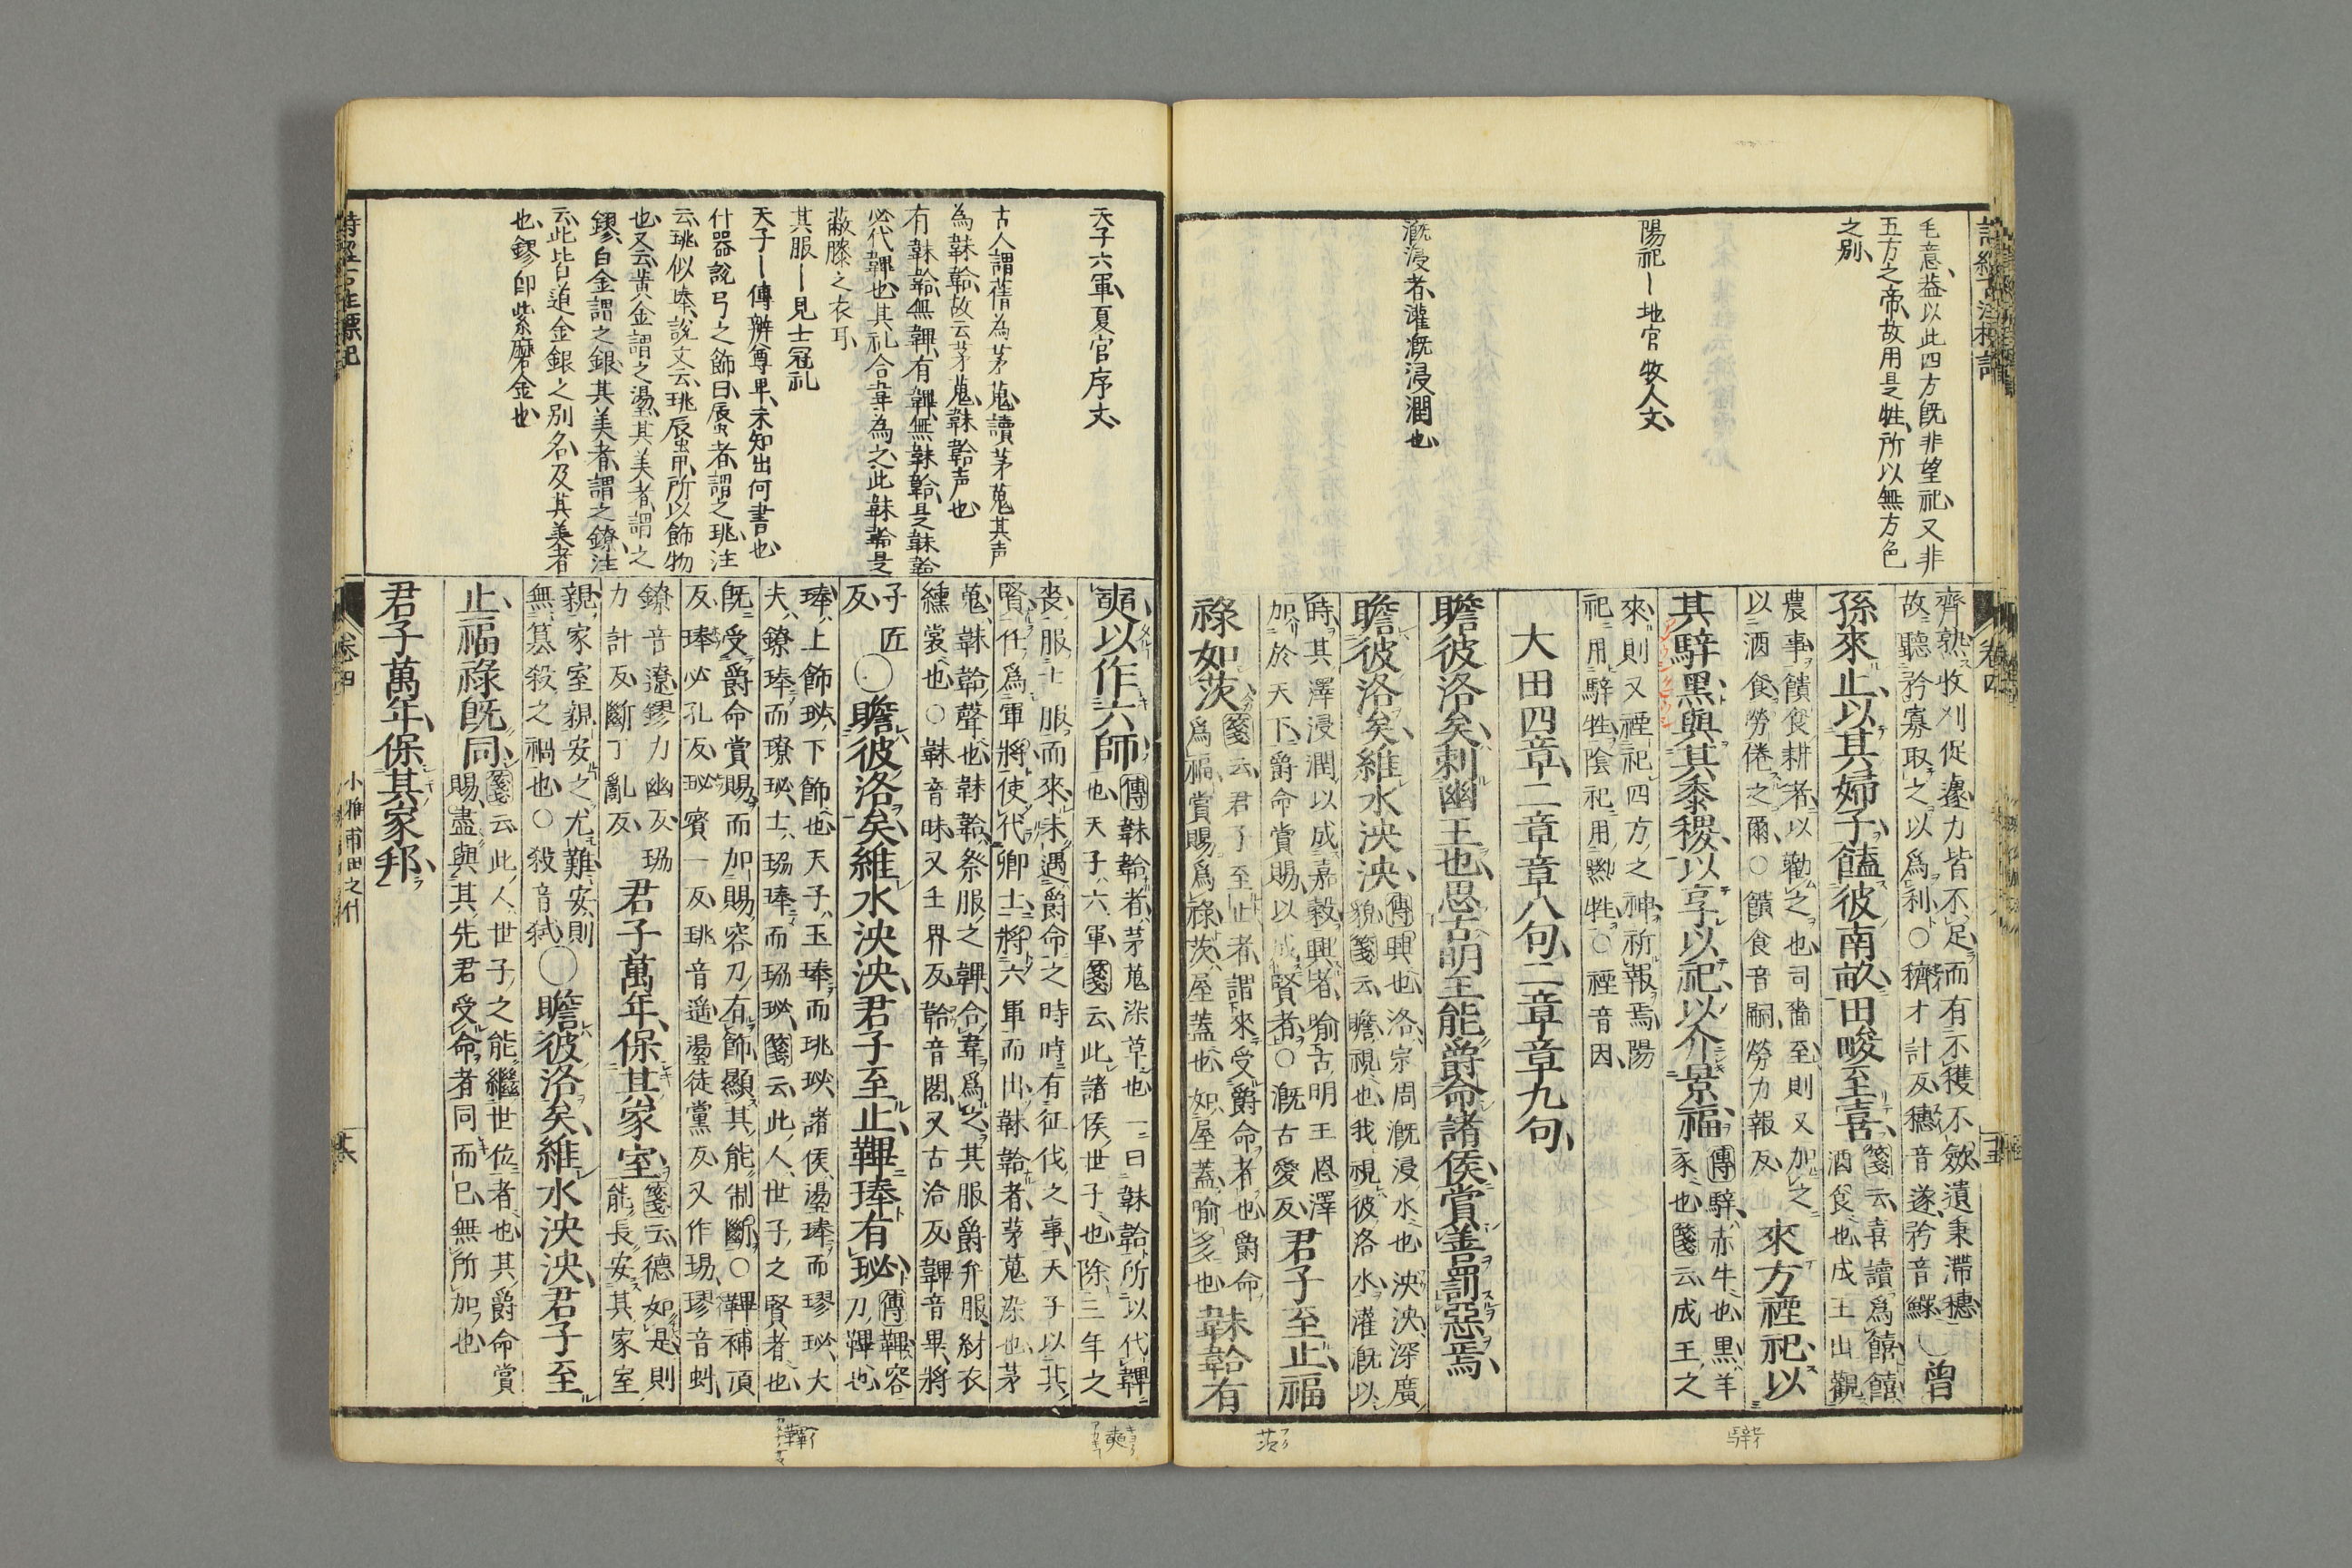 毛意、蓋以此四方既非望祀、又非
五方之帝、故用是牲、所以無方色
之別、
陽祀ー地官牧人文、
漑浸者、灌漑浸潤也、
齊熟、收刈促遽、力皆不足、而有不穫不斂、遺秉滯穗、
故聽矜寡取之以爲利、○穧才計反、穗音遂、矜音鰥、○曾
孫來止、以其婦子、饁彼南畝、田畯至喜、箋云、喜讀爲饎、饎、
酒食也、成王出觀
農事、饋食耕者、以勸之也、司嗇至、則又加之
以酒食、勞倦之爾、○饋食音嗣、勞力報反、來方禋祀、以
其騂黑、與其黍稷、以享以祀、以介景福、傳騂、赤牛也、黑、羊
豕也、箋云、成王之
來、則又禋祀四方之神、祈報焉、陽
祀用騂牲、陰祀用黝牲、○禋音因、
大田四章、二章章八句、二章章九句、
瞻彼洛矣、刺幽王也、思古明王能爵命諸侯、賞善罰惡焉、
瞻彼洛矣、維水泱泱、傳興也、洛、宗周漑浸水也、泱泱、深廣
貌、箋云、瞻、視也、我視彼洛水、灌漑以
時、其澤浸潤、以成嘉穀、興者、喻古明王恩澤
加於天下、爵命賞賜、以成賢者、○漑古愛反、君子至止、福
祿如茨、箋云、君子至止者、謂來受爵命者也、爵命
爲福、賞賜爲祿、茨、屋蓋也、如屋蓋、喻多也、韎韐有
茨
騂
天子六軍、夏官序文、
古人謂蒨為茅蒐、讀茅蒐其声
為韎韐、故云茅蒐、韎韐声也、
有韎韐、無韠、有韠、無韎韐、是韎韐
必代韠也、其礼合韋為之、此韎韐是
蔽膝之衣耳、
其服ー見士冠礼
天子ー傳辦尊卑、未知出何書也、
什器說弓之飾曰、蜃者、謂之珧、注
云、珧似琫、說文云、珧蜃甲、所以飾物
也、又云、黃金謂之璗、其美者、謂之
鏐、白金謂之銀、其美者、謂之鐐、注
云、此皆道金銀之別名、及其美者
也、鏐卽紫磨金也、
奭、以作六師、傳韎韐者、茅蒐染草也、一曰韎韐、所以代韠
也、天子、六軍、箋云、此諸侯世子也、除三年之
喪、服士服而來、未遇爵命之時、時有征伐之事、天子以其
賢、任爲軍將、使代卿士、將六軍而出、韎韐者、茅蒐染也、茅
蒐、韎韐聲也、韎韐、祭服之韠、合韋爲之、其服爵弁服、紂衣
纁裳也、○韎音昧、又士界反、韐音閤、又古洽反、韠音畢、將
子匠
反、○瞻彼洛矣、維水泱泱、君子至止、鞸琫有珌、傳鞸、容
刀鞸也、
琫、上飾、珌、下飾也、天子、玉琫而珧珌、諸侯、璗琫而璆珌、大
夫、鐐琫而璙珌、士、珕琫而珕珌、箋云、此人世子之賢者也、
既受爵命賞賜、而加賜容刀、有飾、顯其能制斷、○鞸補頂
反、琫必孔反、珌賓一反、珧音遥、璗徒黨反、又作瑒、璆音蚪、
鐐音遼、鏐力幽反、珕
力計反、斷丁亂反、君子萬年、保其家室、箋云、德如是、則
能長安其家室
親、家室親安之、尤難、安則
無簒殺之禍也、○殺音弑、○瞻彼洛矣、維水泱泱、君子至
止、福祿既同、箋云、此人世子之能繼世位者也、其爵命賞
賜、盡與其先君受命者同而已、無所加也、
君子萬年、保其家邦、
卷四
小雅甫田之什
奭